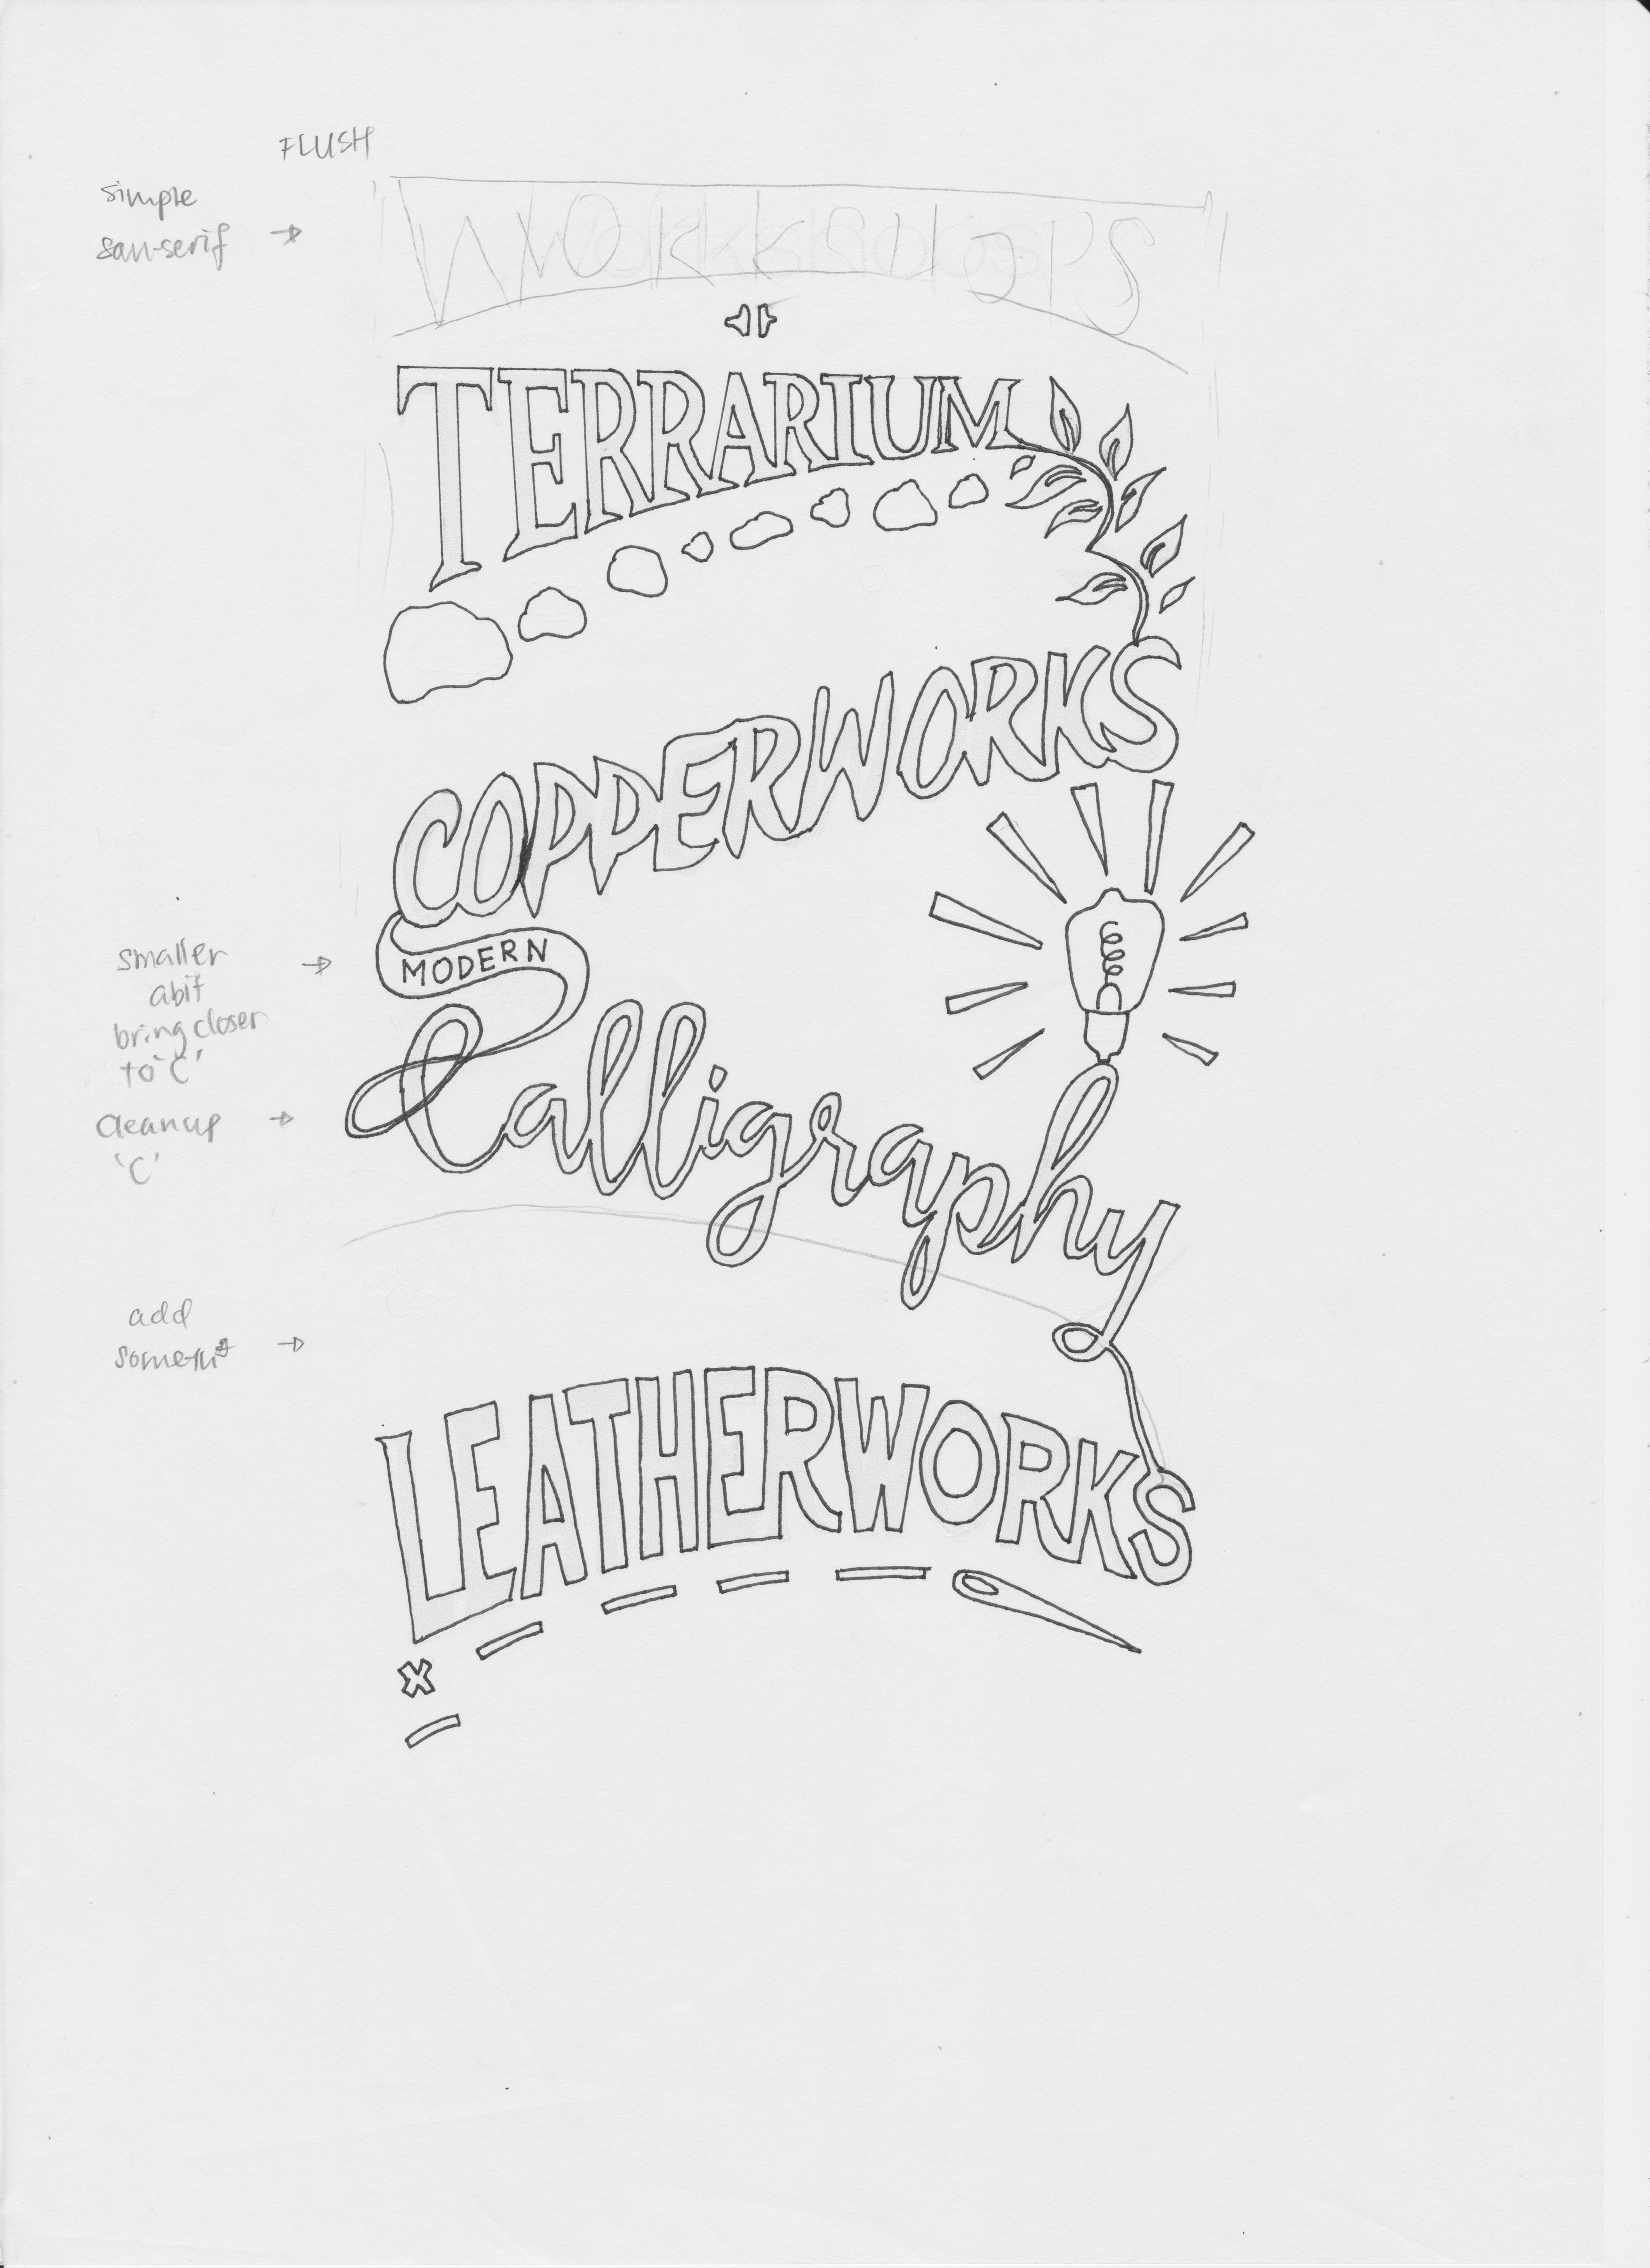 FLUSH
simple
san-serif →
WORKSHOPS
TERRARIUM
COPPERWORKS
MODERN
smaller →
abit
bring closer
to 'C'
Calligraphy
cleanup →
'C'
add
LEATHERWORKS